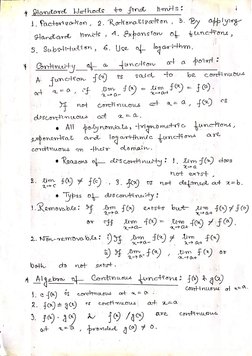 * Standard Methods to find limits:
1. Factorisation, 2. Rationalization, 3. By applying
standard limits, 4. Expansion of functions,
5. Substitution, 6. Use of logarithm.
* Continuity of a function at a point:
A function f(x) is said to be continuous
at x = a, if lim x→a⁻ f(x) = lim x→a⁺ f(x) = f(a).
If not continuous at x = a, f(x) is
discontinuous at x = a.
• All polynomials, trigonometric functions,
exponential and logarithmic functions are
continuous in their domain.
• Reasons of discontinuity: 1. lim x→a f(x) does
not exist,
2. lim x→a f(x) ≠ f(a), 3. f(x) is not defined at x=a.
• Types of discontinuity:
1. Removable: If lim x→a f(x) exists but lim x→a f(x) ≠ f(a)
or if lim x→a⁻ f(x) = lim x→a⁺ f(x) ≠ f(a).
2. Non-removable: i) If lim x→a⁻ f(x) ≠ lim x→a⁺ f(x)
ii) If lim x→a⁻ f(x), lim x→a⁺ f(x) or
both do not exist.
* Algebra of Continuous functions: f(x) & g(x)
continuous at x=a.
1. c.f(x) is continuous at x=a.
2. f(x) ± g(x) is continuous at x=a
3. f(x)·g(x) & f(x)/g(x) are continuous
at x=a, provided g(a) ≠ 0.